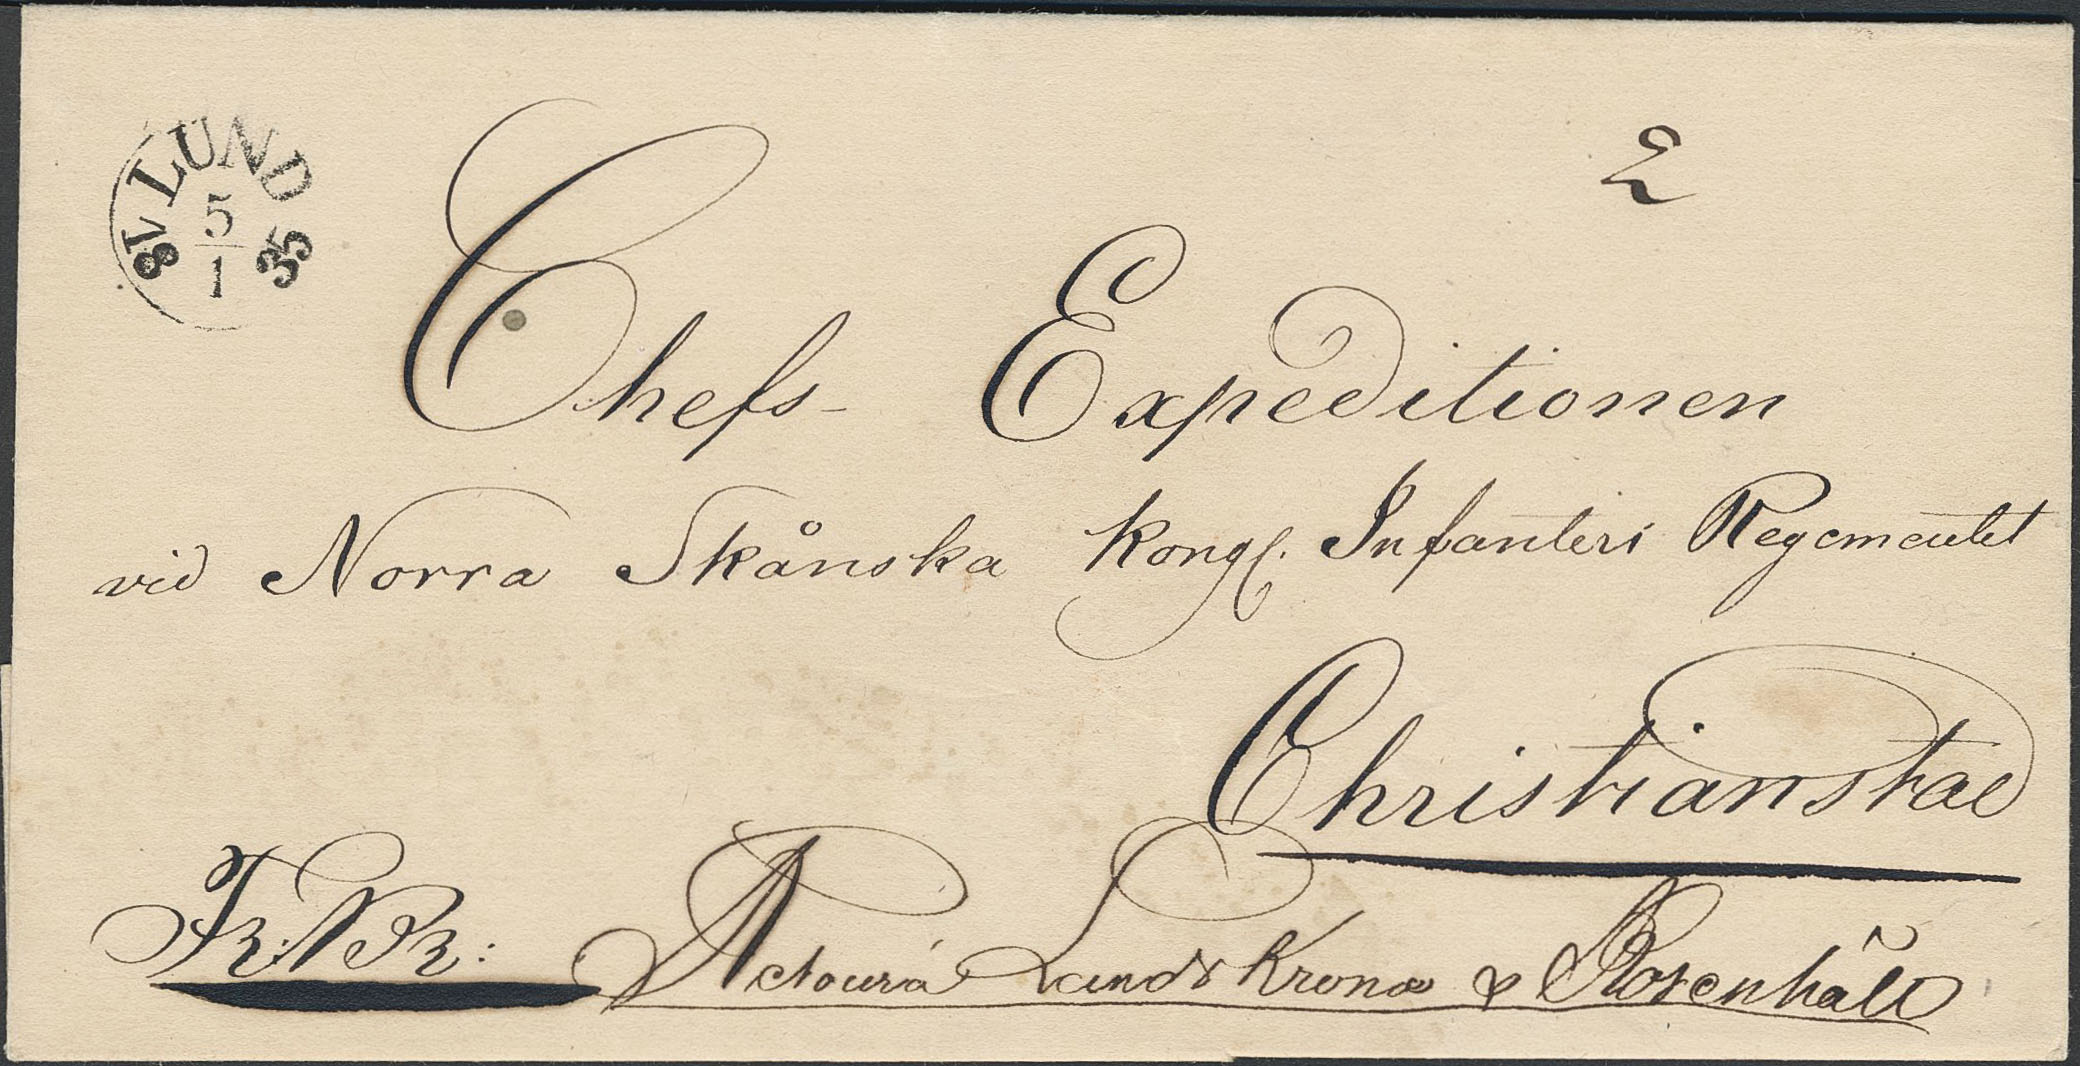 LUND
5
1
18 35
2
Chefs- Expeditionen
vid Norra Skånska Kongl. Infanteri Regementet
Christianstad
Landskrona & Rosenhäll